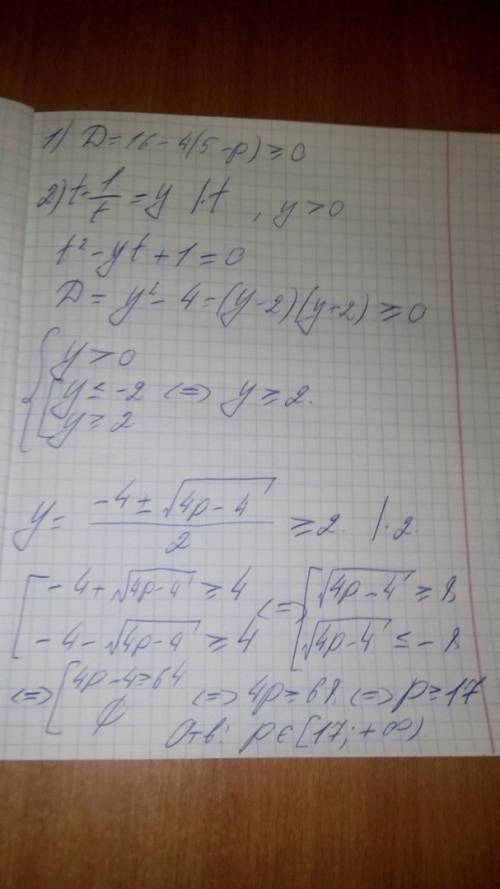 1) D = 16 - 4(5 - p) ≥ 0
2) t + 1/t = y |·t , y > 0
t² - yt + 1 = 0
D = y² - 4 = (y - 2)(y + 2) ≥ 0
{ y > 0
[ y ≤ -2 ⇔ y ≥ 2.
y ≥ 2
y = (-4 ± √(4p - 4)) / 2 ≥ 2. |·2.
[ -4 + √(4p - 4) ≥ 4 ⇔ [ √(4p - 4) ≥ 8
-4 - √(4p - 4) ≥ 4 √(4p - 4) ≤ -8
⇔ [ 4p - 4 ≥ 64 ⇔ 4p ≥ 68 ⇔ p ≥ 17
∅
Отв: p ∈ [17; +∞)